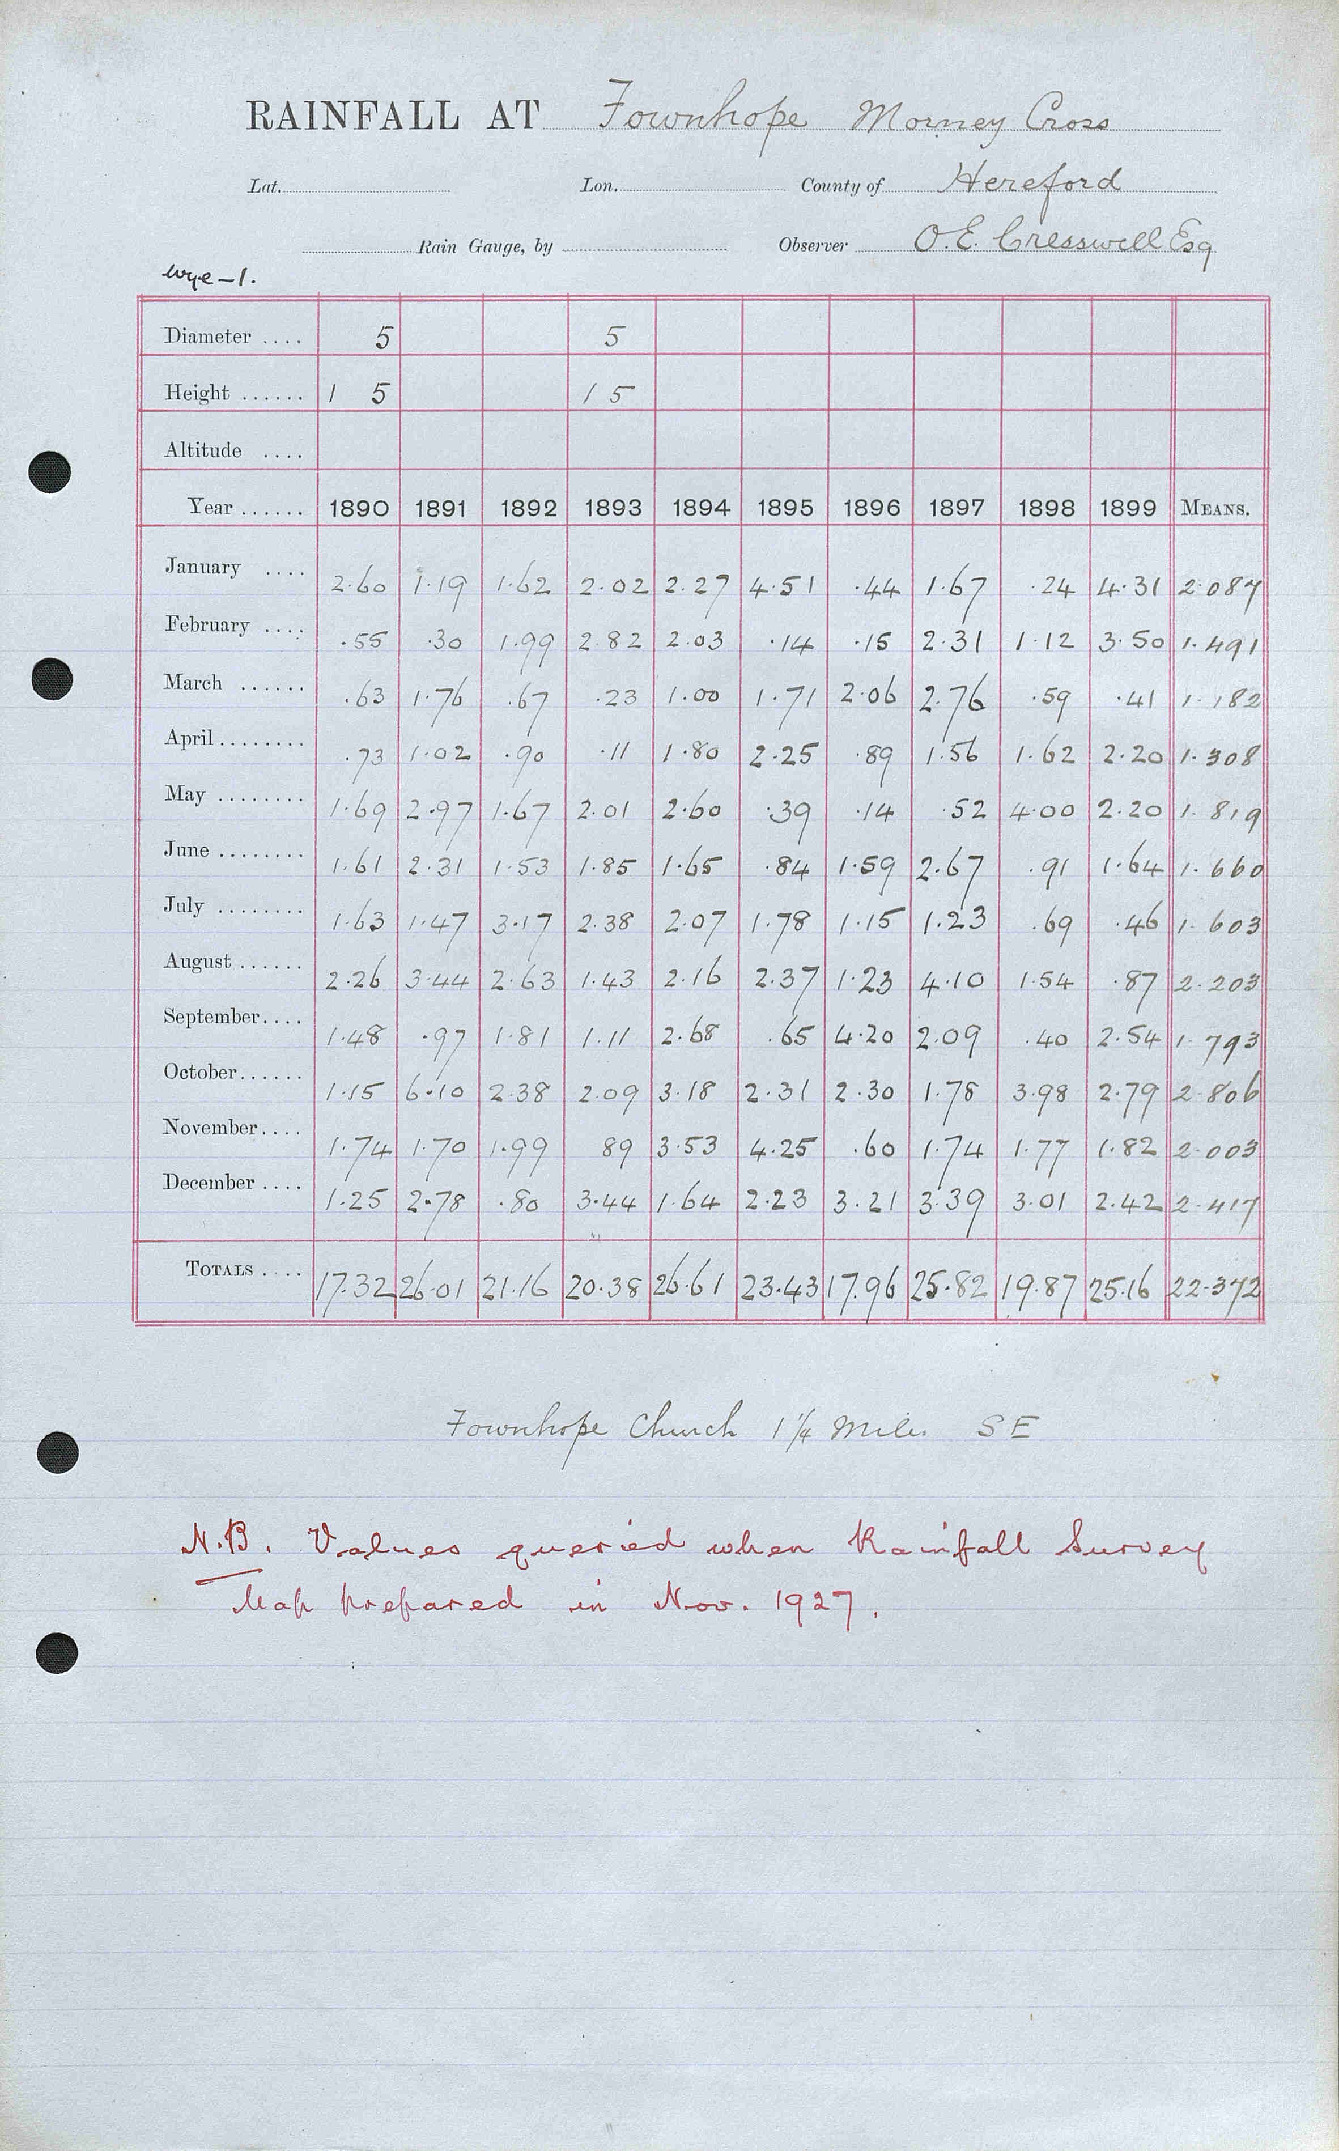 RAINFALL AT Fownhope Morney Cross
Lat. Lon. County of Hereford
Rain Gauge, by Observer O.E. Cresswell Esq
Wye-1.
Diameter .... 5 5
Height ...... 1 5 1 5
Altitude ....
Year ...... 1890 1891 1892 1893 1894 1895 1896 1897 1898 1899 MEANS.
January .... 2.60 1.19 1.62 2.02 2.27 4.51 .44 1.67 .24 4.31 2.087
February .... .55 .30 1.99 2.82 2.03 .14 .15 2.31 1.12 3.50 1.491
March ...... .63 1.76 .67 .23 1.00 1.71 2.06 2.76 .59 .41 1.182
April ........ .73 1.02 .90 .11 1.80 2.25 .89 1.56 1.62 2.20 1.308
May ........ 1.69 2.97 1.67 2.01 2.60 .39 .14 .52 4.00 2.20 1.819
June ........ 1.61 2.31 1.53 1.85 1.65 .84 1.59 2.67 .91 1.64 1.660
July ........ 1.63 1.47 3.17 2.38 2.07 1.78 1.15 1.23 .69 .46 1.603
August ...... 2.26 3.44 2.63 1.43 2.16 2.37 1.23 4.10 1.54 .87 2.203
September .... 1.48 .97 1.81 1.11 2.68 .65 4.20 2.09 .40 2.54 1.793
October ...... 1.15 6.10 2.38 2.09 3.18 2.31 2.30 1.78 3.98 2.79 2.806
November .... 1.74 1.70 1.99 89 3.53 4.25 .60 1.74 1.77 1.82 2.003
December .... 1.25 2.78 .80 3.44 1.64 2.23 3.21 3.39 3.01 2.42 2.417
TOTALS .... 17.32 26.01 21.16 20.38 26.61 23.43 17.96 25.82 19.87 25.16 22.372
Fownhope Church 1 1/4 Miles SE
N.B. Values queried when Rainfall Survey
Map prepared in Nov. 1927.